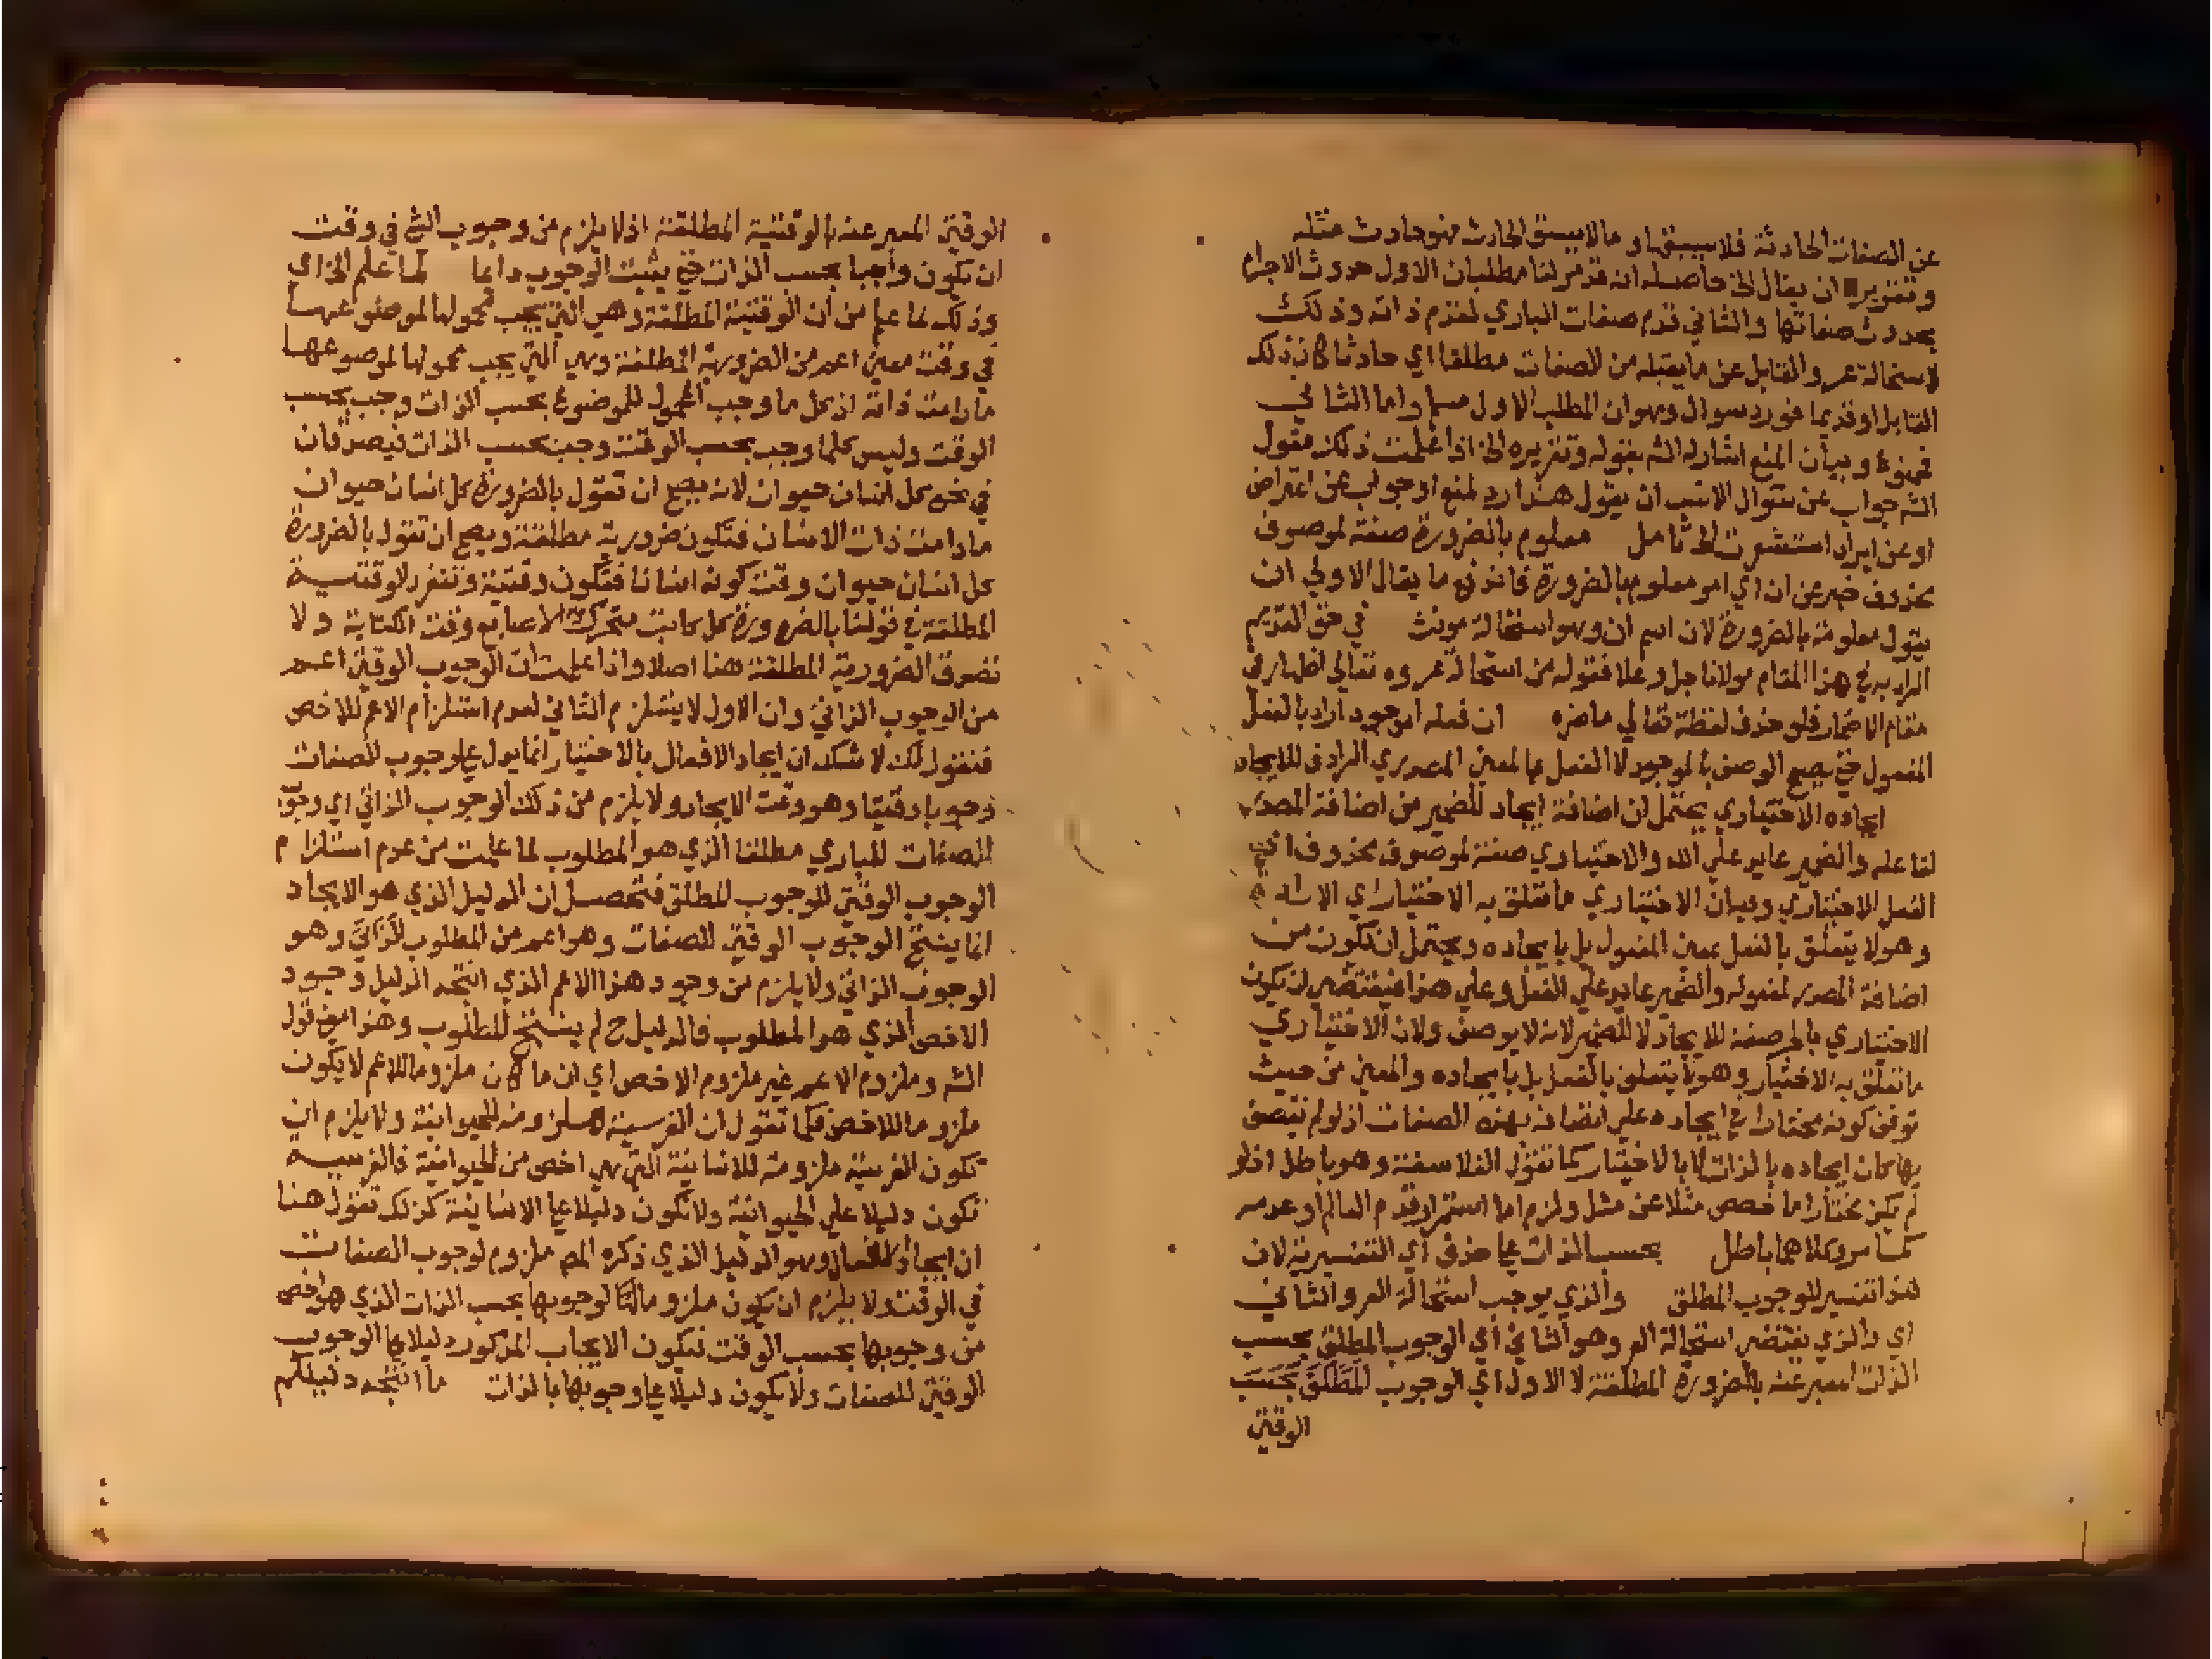 عن الصفات الحادثة فلا يسبقها وما لا يسبق الحادث فهو حادث مثله
وتقريره ان يقال الخ حاصله انه قد تقرر لنا مطلبان الاول حدوث الاجرام
بحدوث صفاتها والثاني قدم صفات الباري لقدم ذاته وذلك
لاستحالة عرو القابل عن ما يقبله من الصفات مطلقا اي حادثا كان ذلك
القابل او قديما فورد سوال وهو ان المطلب الاول مسلم واما الثاني
فممنوع وبيان المنع اشار له الشه بقوله وتقريره الخ اذا علمت ذلك فقول
الشه جواب عن سوال الانسب ان يقول هذا رد لمنع او جواب عن اعتراض
او عن ايراد استشعرت الخ تامل معلوم بالضرورة صفة لموصوف
محذوف خبر عن ان اي امر معلوم بالضرورة فاندفع ما يقال الاولي ان
يقول معلومة بالضرورة لان اسم ان وهو استحالة مونث في حق القديم
المراد به في هذا المقام مولانا جل وعلا فقوله من استحالة عروه تعالي اظهار في
مقام الاضمار فلو حذف لفظة تعالي ما ضره ان فعله الموجود اراد بالفعل
المفعول حتي يصح الوصف بالموجود لا الفعل بالمعني المصدري المرادف للايجاد
ايجاده الاختياري يحتمل ان اضافة ايجاد للضمير من اضافة المصدر
لفاعله والضمير عايد علي الله والاختياري صفة لموصوف محذوف اي
الفعل الاختياري وفيه ان الاختياري ما تعلق به الاختيار اي الارادة
وهو لا يتعلق بالفعل بمعني المفعول بل بايجاده ويحتمل ان يكون من
اضافة المصدر لمفعوله والضمير عايد علي الفعل وعلي هذا فيقتضي ان يكون
الاختياري بالجر صفة للايجاد لا للضمير لانه لا يوصف ولان الاختياري
ما تعلق به الاختيار وهو لا يتعلق بالفعل بل بايجاده والمعني من حيث
توقف كونه مختارا في ايجاده علي اتصافه بهذه الصفات اذ لو لم يتصف
بها كان ايجاده بالذات لا بالاختيار كما تقول الفلاسفة وهو باطل اذ لو
لم يكن مختارا ما خصص مثلا عن مثل ولزم اما استمرار قدم العالم او عدمه
كما مر وكلاهما باطل بحسب الذات علي حذف اي التفسيرية لان
هذا تفسير للوجوب المطلق والذي يوجب استحالة العرو الثاني
اي والذي يقتضي استحالة العرو هو الثاني اي الوجوب المطلق بحسب
الذات المعبر عنه بالضرورة المطلقة لا الاول اي الوجوب المطلق بحسب
الوقتي
الوقتي المعبر عنه بالوقتية المطلقة اذ لا يلزم من وجوب الشي في وقت
ان يكون واجبا بحسب الذات حتي يثبت الوجوب دايما لما علم الخ اي
وذلك لما علم من ان الوقتية المطلقة وهي التي يجب محمولها لموضوعها
في وقت معين اعم من الضرورية المطلقة وهي التي يجب محمولها لموضوعها
مادامت ذاته اذ كل ما وجب المحمول للموضوع بحسب الذات وجب بحسب
الوقت وليس كلما وجب بحسب الوقت وجب بحسب الذات فيصدقان
في نحو كل انسان حيوان لانه يصح ان تقول بالضرورة كل انسان حيوان
مادامت ذات الانسان فتكون ضرورية مطلقة ويصح ان تقول بالضرورة
كل انسان حيوان وقت كونه انسانا فتكون وقتية وتنفرد الوقتية
المطلقة في قولنا بالضرورة كل كاتب متحرك الاصابع وقت الكتابة ولا
تصدق الضرورية المطلقة هنا اصلا واذا علمت ان الوجوب الوقتي اعم
من الوجوب الذاتي وان الاول لا يستلزم الثاني لعدم استلزام الاعم للاخص
فنقول لك لا شك ان ايجاد الافعال بالاختيار انما يدل علي وجوب الصفات
وجوبا وقتيا وهو وقت الايجاد ولا يلزم من ذلك الوجوب الذاتي اي وجوب
الصفات للباري مطلقا الذي هو المطلوب لما علمت من عدم استلزام
الوجوب الوقتي للوجوب المطلق فتحصل ان الدليل الذي هو الايجاد
انما ينتج الوجوب الوقتي للصفات وهو اعم من المطلوب الذاتي وهو
الوجوب الذاتي ولا يلزم من وجود هذا الاعم الذي انتجه الدليل وجود
الاخص الذي هو المطلوب فالدليل ح لم ينتج المطلوب وهذا معني قول
الشه وملزوم الاعم غير ملزوم الاخص اي ان ما كان ملزوما للاعم لا يكون
ملزوما للاخص فكما تقول ان الفرسية ملزومة للحيوانية ولا يلزم ان
تكون الفرسية ملزومة للانسانية التي هي اخص من الحيوانية فالفرسية
تكون دليلا علي الحيوانية ولا تكون دليلا علي الانسانية كذلك تقول هنا
ان ايجاد الافعال وهو الدليل الذي ذكره المص ملزوم لوجوب الصفات
في الوقت ولا يلزم ان يكون ملزوما لوجوبها بحسب الذات الذي هو اخص
من وجوبها بحسب الوقت فيكون الايجاب المذكور دليلا علي الوجوب
الوقتي للصفات ولا يكون دليلا علي وجوبها بالذات ما انتجه دليلكم